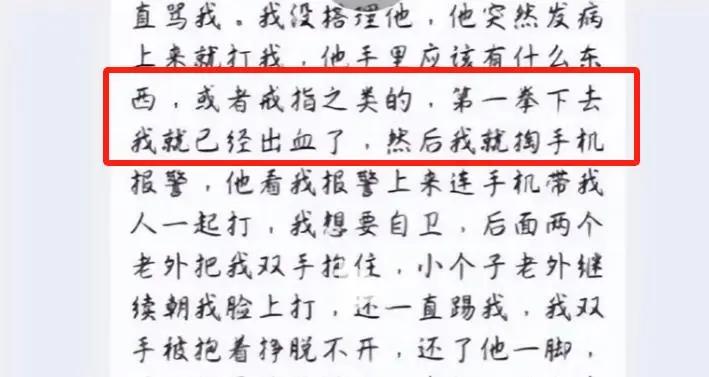 直骂我。我没搭理他，他突然发病
上来就打我，他手里应该有什么东
西，或者戒指之类的，第一拳下去
我就已经出血了，然后我就掏手机
报警，他看我报警上来连手机带我
人一起打，我想要自卫，后面两个
老外把我双手抱住，小个子老外继
续朝我脸上打，还一直踢我，我双
手被抱着挣脱不开，还了他一脚，